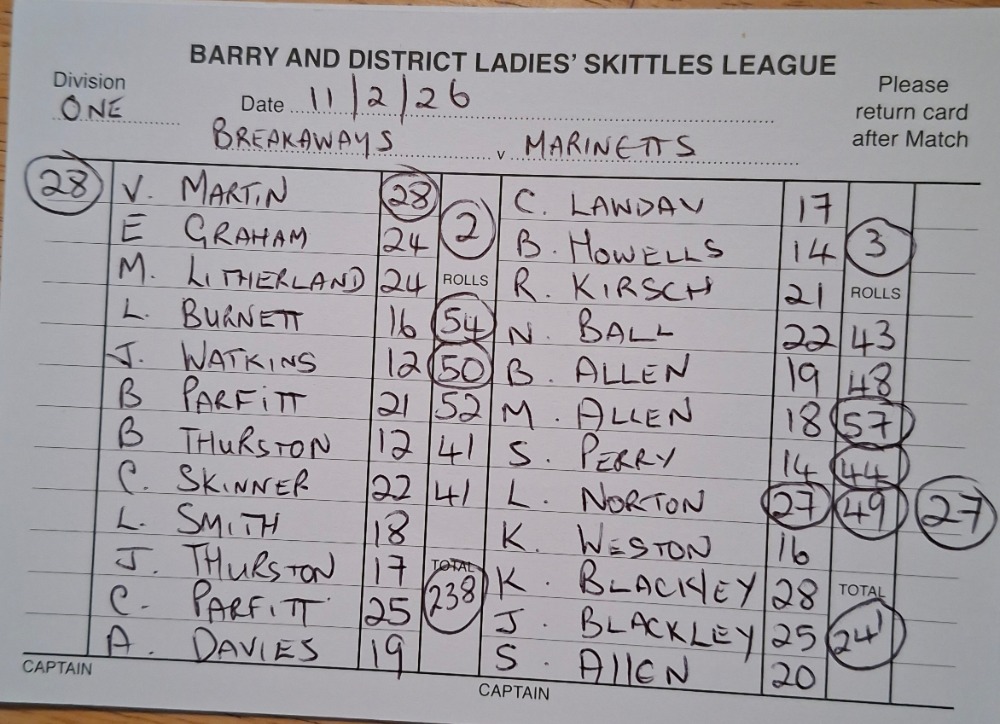 BARRY AND DISTRICT LADIES' SKITTLES LEAGUE
Division ONE
Date 11/2/26
Please return card after Match
BREAKAWAYS v MARINETTS
28 V. MARTIN 28 2 C. LAWDAV 17 3
E GRAHAM 24 B. HOWELLS 14
M. LITHERLAND 24 ROLLS R. KIRSCH 21 ROLLS
L. BURNETT 16 54 N. BALL 22 43
J. WATKINS 12 50 B. ALLEN 19 48
B PARFITT 21 52 M. ALLEN 18 57
B THURSTON 12 41 S. PERRY 14 44
C. SKINNER 22 41 L. NORTON 27 49 27
L. SMITH 18 K. WESTON 16
J. THURSTON 17 TOTAL K. BLACKLEY 28 TOTAL
C. PARFITT 25 238 J. BLACKLEY 25 241
A. DAVIES 19 S. AllEN 20
CAPTAIN CAPTAIN